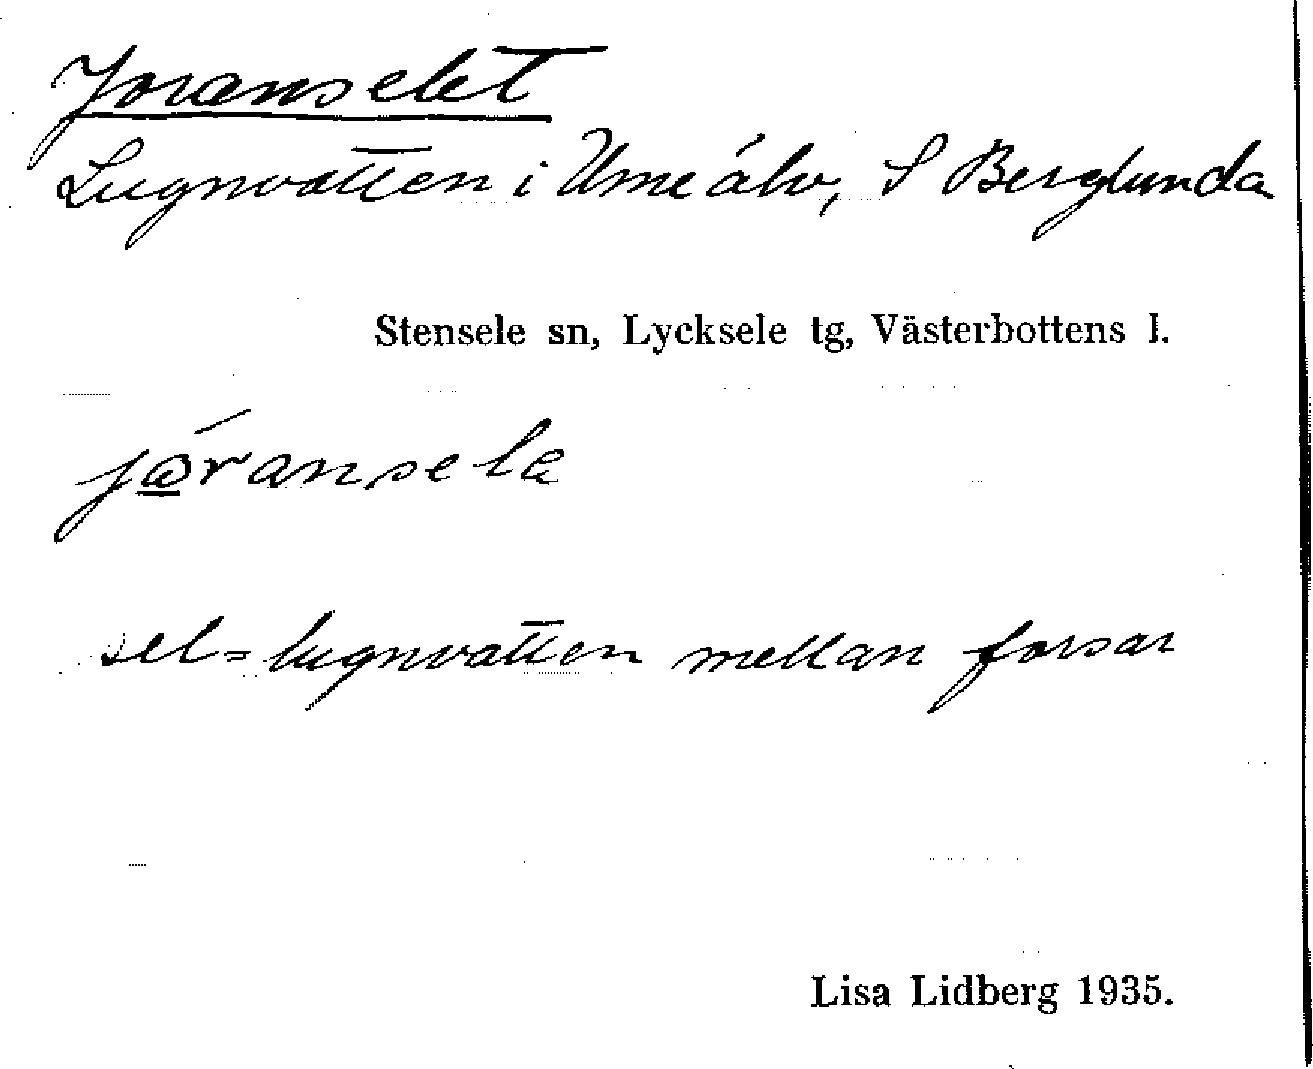 Joranselet
Lugnvatten i Umeälv, S Berglunda
Stensele sn, Lycksele tg, Västerbottens l.
jøransela
sel = lugnvatten mellan forsar
Lisa Lidberg 1935.